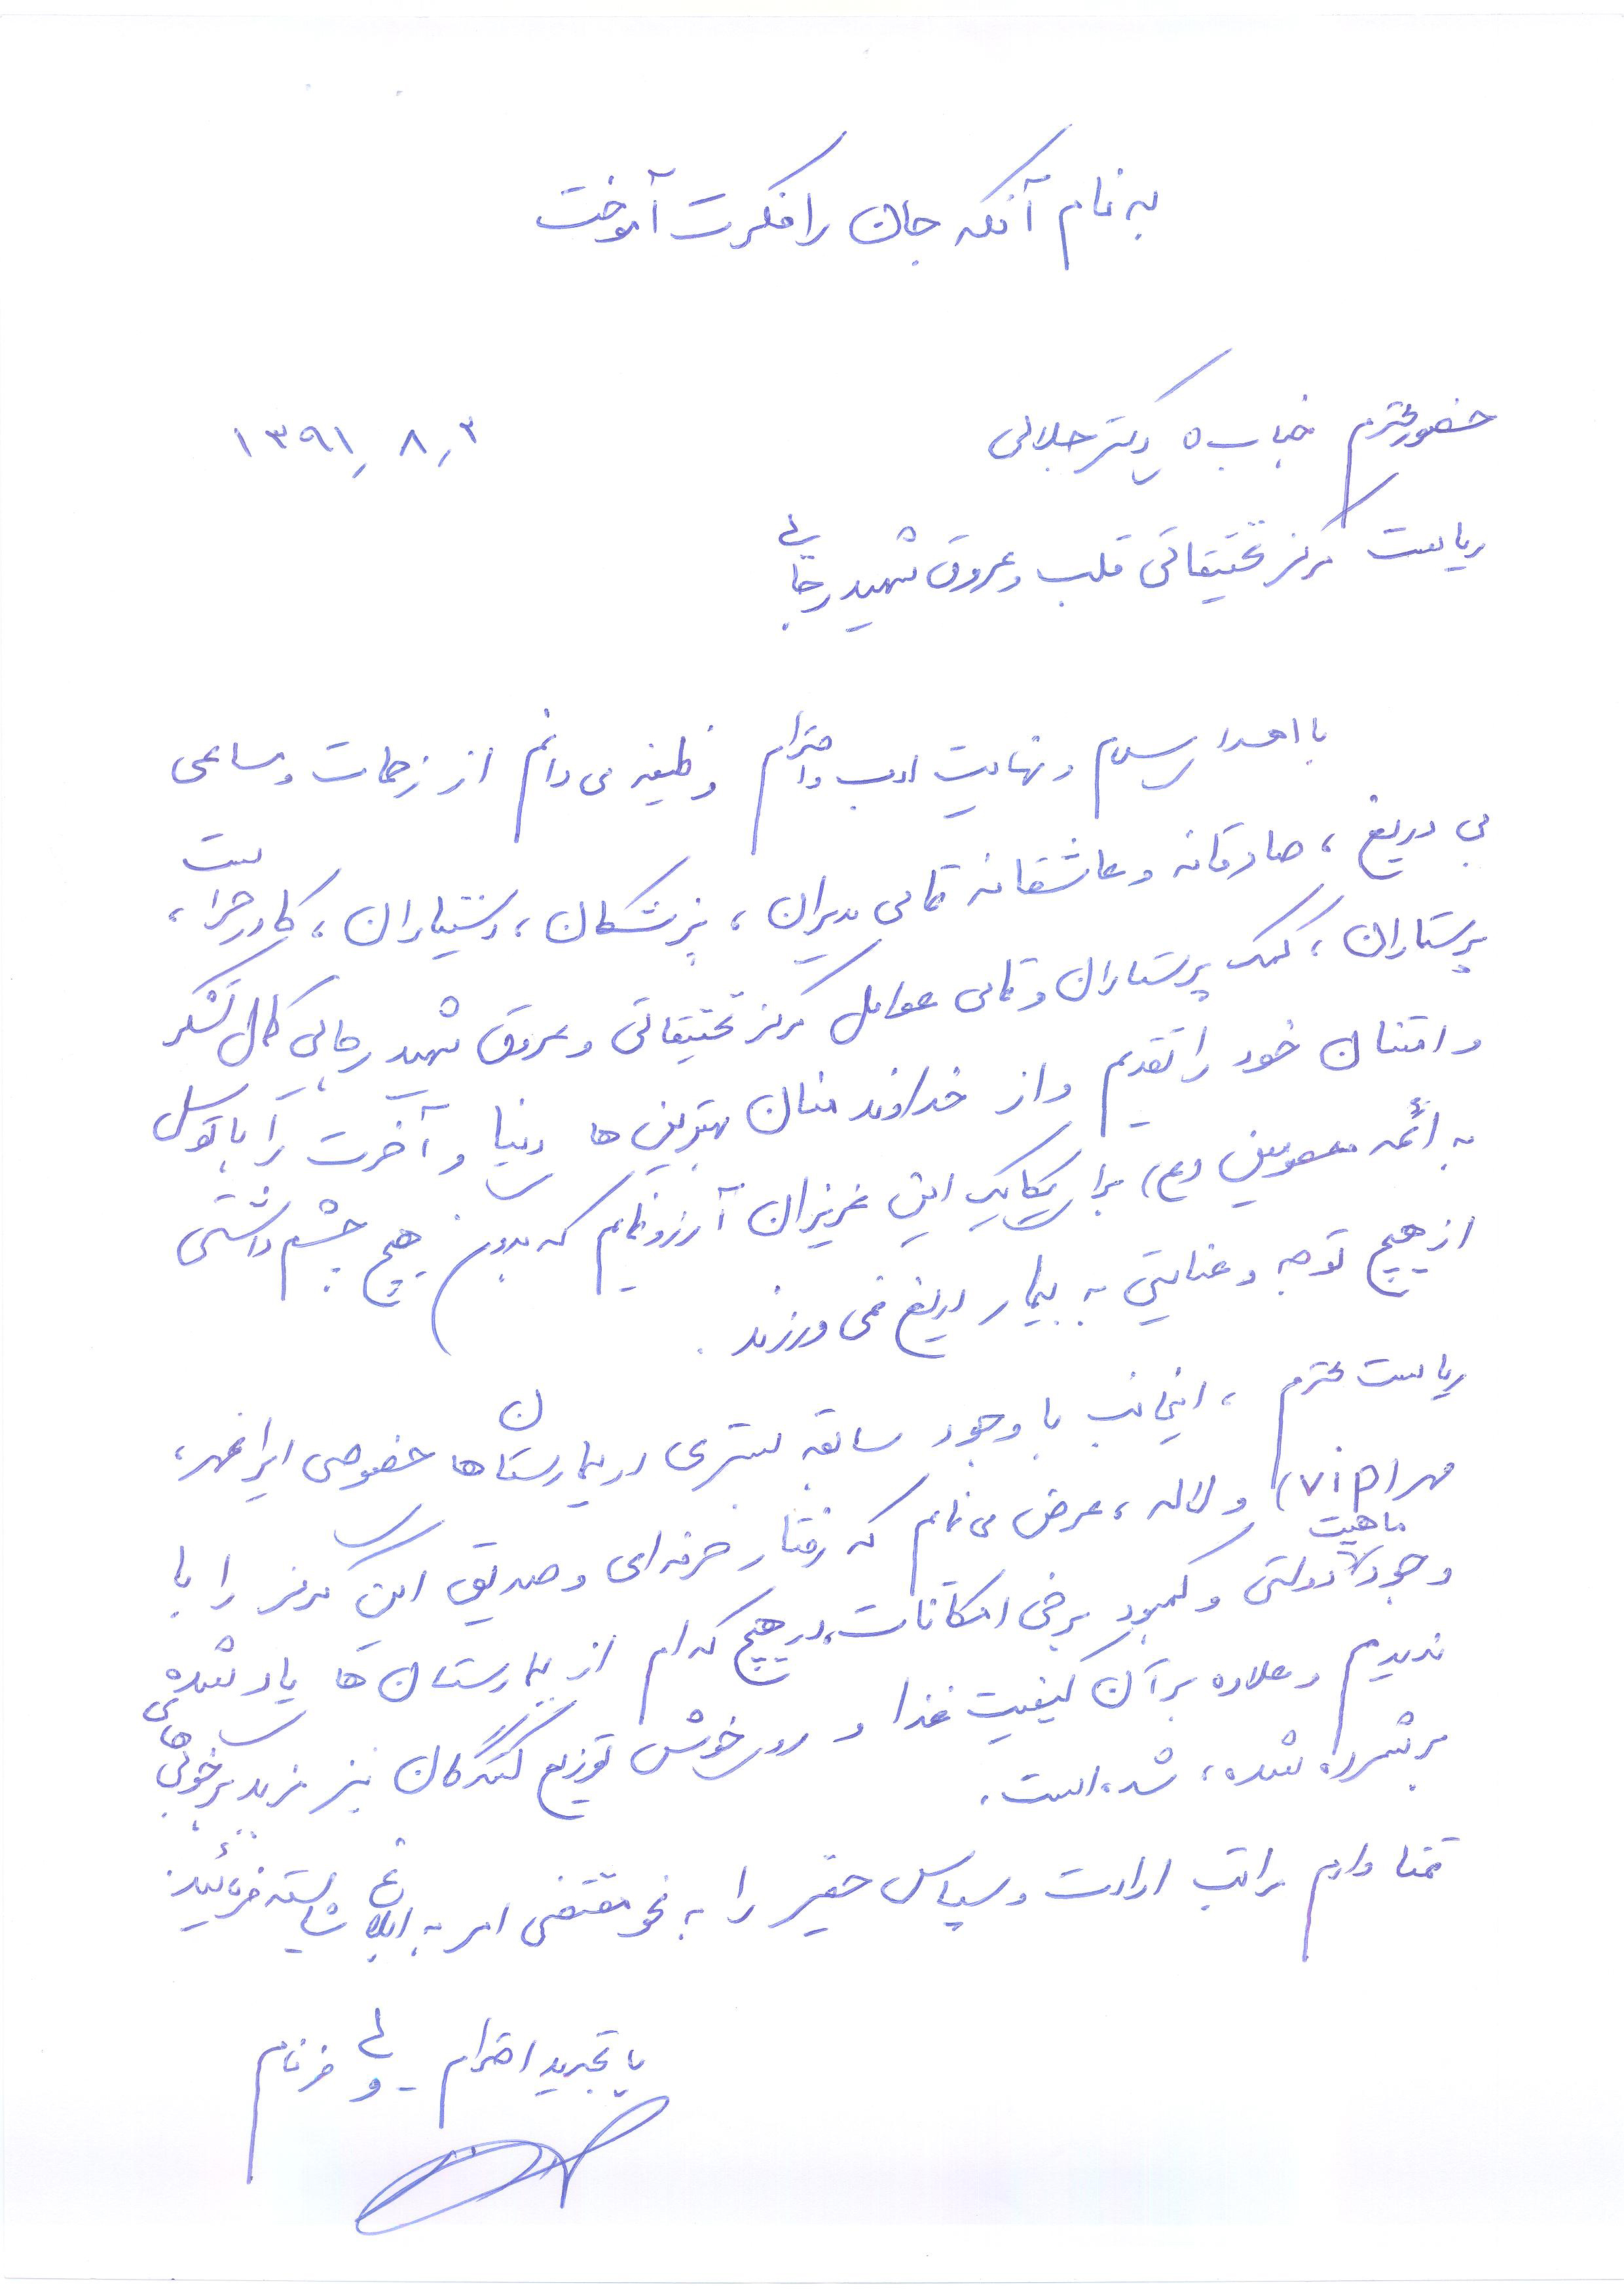 به نام آنکه جان را فکرت آموخت
حضور محترم جناب دکتر جلالی
۱۳۹۱/۸/۳
ریاست مرکز تحقیقاتی قلب و عروق شهید رجایی
با اهدا سلام و نهایت ادب و احترام وظیفه می دانم از زحمات و مساعی
بی دریغ، صادقانه و عاشقانه تمامی مدیران، پزشکان، دستیاران، کادر حراست،
پرستاران، کمک پرستاران و تمامی عوامل مرکز تحقیقاتی و عروق شهید رجایی کمال تشکر
و امتنان خود را تقدیم و از خداوند منان بهترین ها دنیا و آخرت را با توسل
به ائمه معصومین (ع) برای یکایک این عزیزان آرزو نمایم که بدون هیچ چشم داشتی
از هیچ توجه و عنایتی به بیمار دریغ نمی ورزند.
ریاست محترم، اینجانب با وجود سابقه بستری در بیمارستان ها خصوصی ایرانمهر،
مهراد (vip) و لاله، عرض می نمایم که رفتار حرفه ای و صدیق این مرکز را با
وجود ماهیت دولتی و کمبود برخی امکانات، در هیچ کدام از بیمارستان ها یاد شده
ندیدم و علاوه بر آن کیفیت غذا و روی خوش توزیع کنندگان نیز مزید بر خوبی های
برشمرده شده، شده است.
تمنا دارم مراتب ارادت و سپاس حقیر را به نحو مقتضی امر به ابلاغ شایسته فرمائید.
با تجدید احترام - ولی فرنام